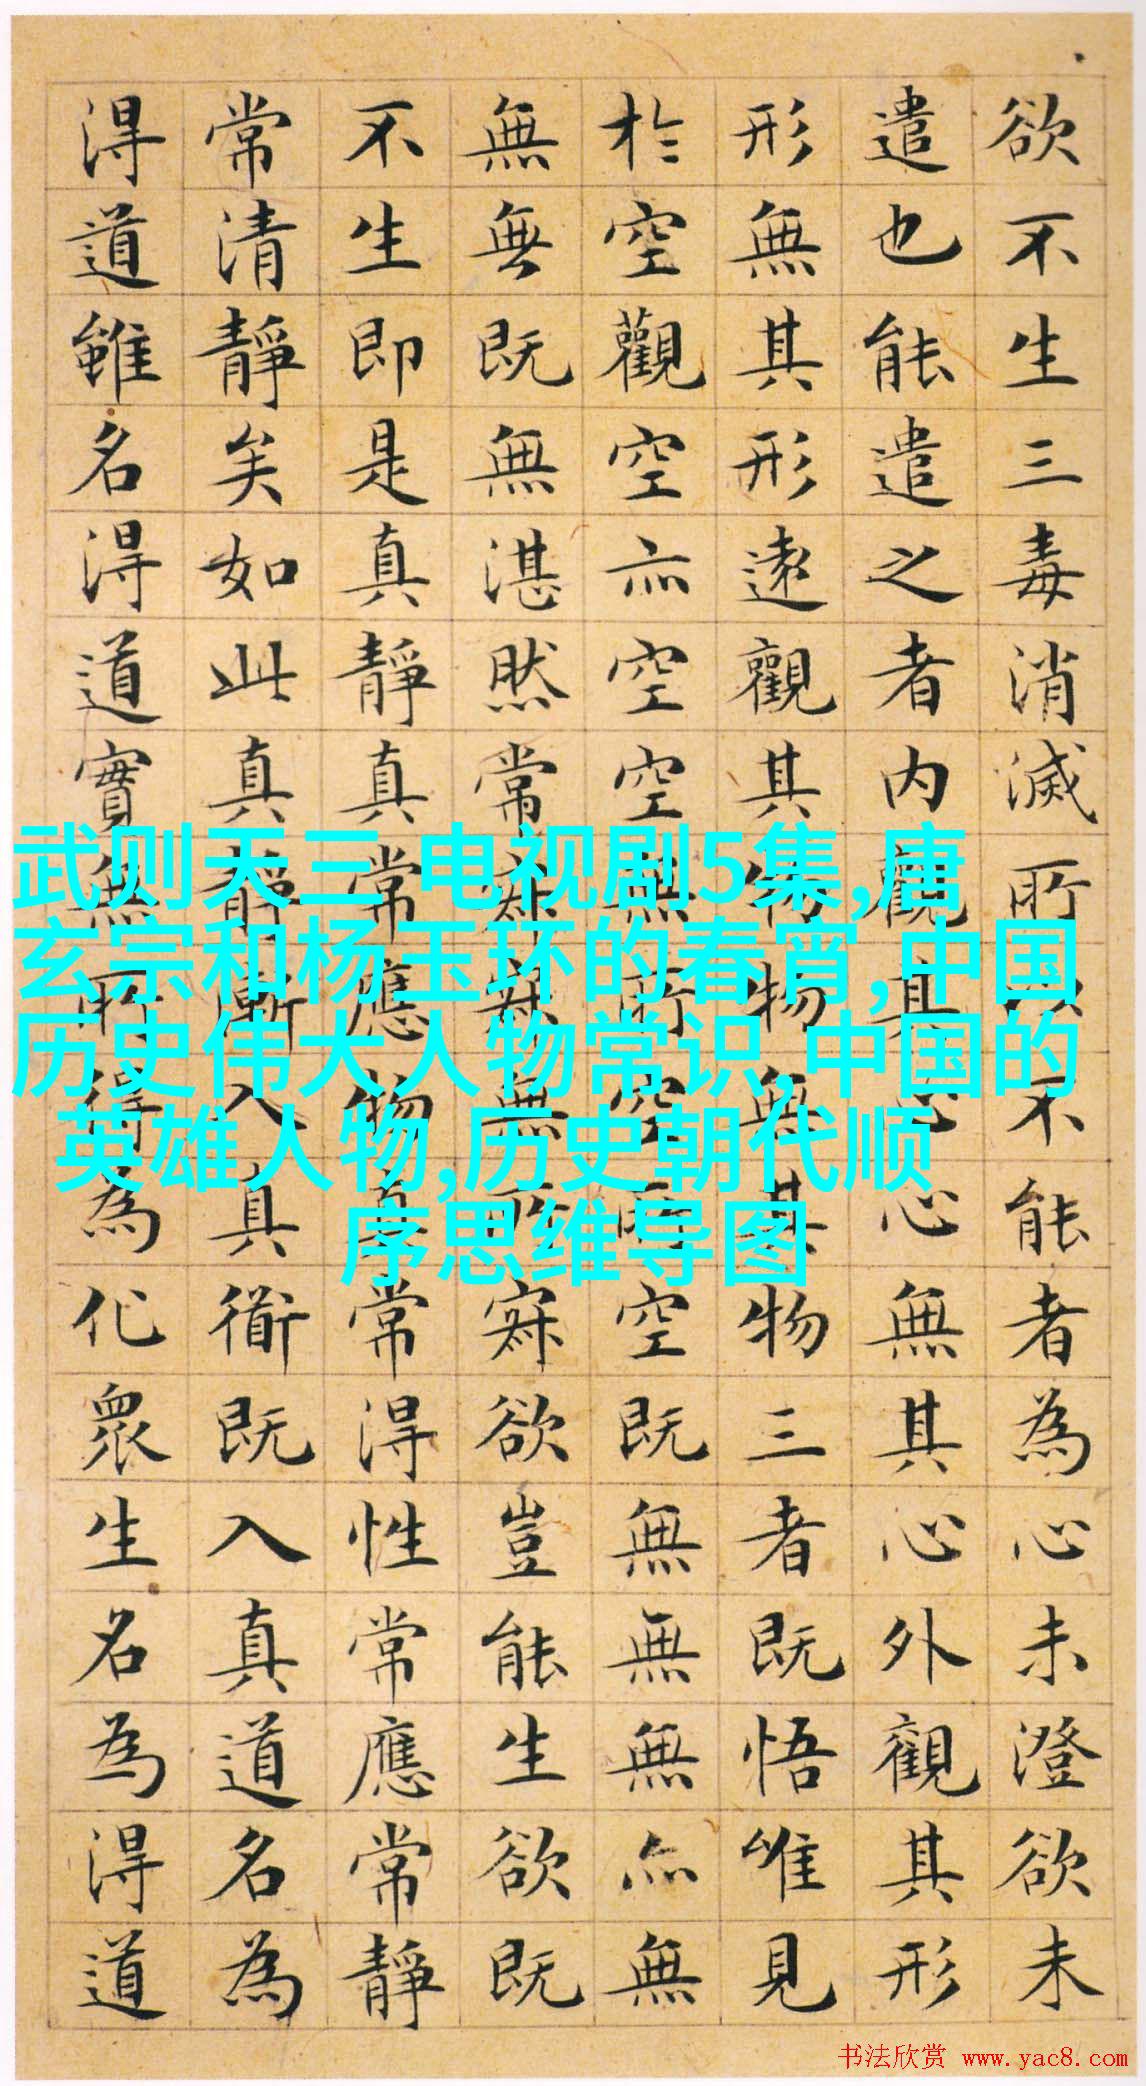 欲不生三毒消滅所以不能者為心未澄欲未
遣也能遣之者内觀其心心無其心外觀其形
形無其形遠觀其物物無其物三者既悟唯見
於空觀空亦空空無所空所空既無無無亦無
無無既無湛然常寂寂無所寂欲豈能生欲既
不生即是真靜真常應物真常得性常應常靜
常清靜矣如此真靜漸入真衜既入真道名為
得道雖名得道實無所得為化眾生名為得道
武则天三 电视剧5集,唐
玄宗和杨玉环的春宵,中国
历史伟大人物常识,中国的
英雄人物,历史朝代顺
序思维导图
书法欣赏 www.yac8.com